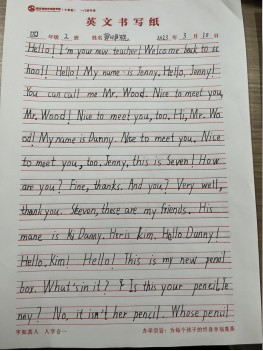 英文书写纸
四 年级 2 班 姓名 2023 年 3 月 10 日
Hello! I'm your new teacher! Welcome back to sc
hool! Hello! My name is Jenny. Hello, Jenny!
You can call me Mr. Wood. Nice to meet you,
Mr. Wood! Nice to meet you, too. Hi, Mr. Wo
od! My name is Danny. Nice to meet you. Nice
to meet you, too. Jenny, this is Seven! How
are you? Fine, thanks. And you? Very well,
thank you. Steven, these are my friends. His
mane is Ki Danny. Her is Kim. Hello Danny!
Hello, Kim! Hello! This is my new pencil
box. What's in it? Is this your pencil, Je
nny? No, it isn't her pencil. Whose pencil
字如其人 人字合一 办学宗旨：为每个孩子的终身幸福奠基